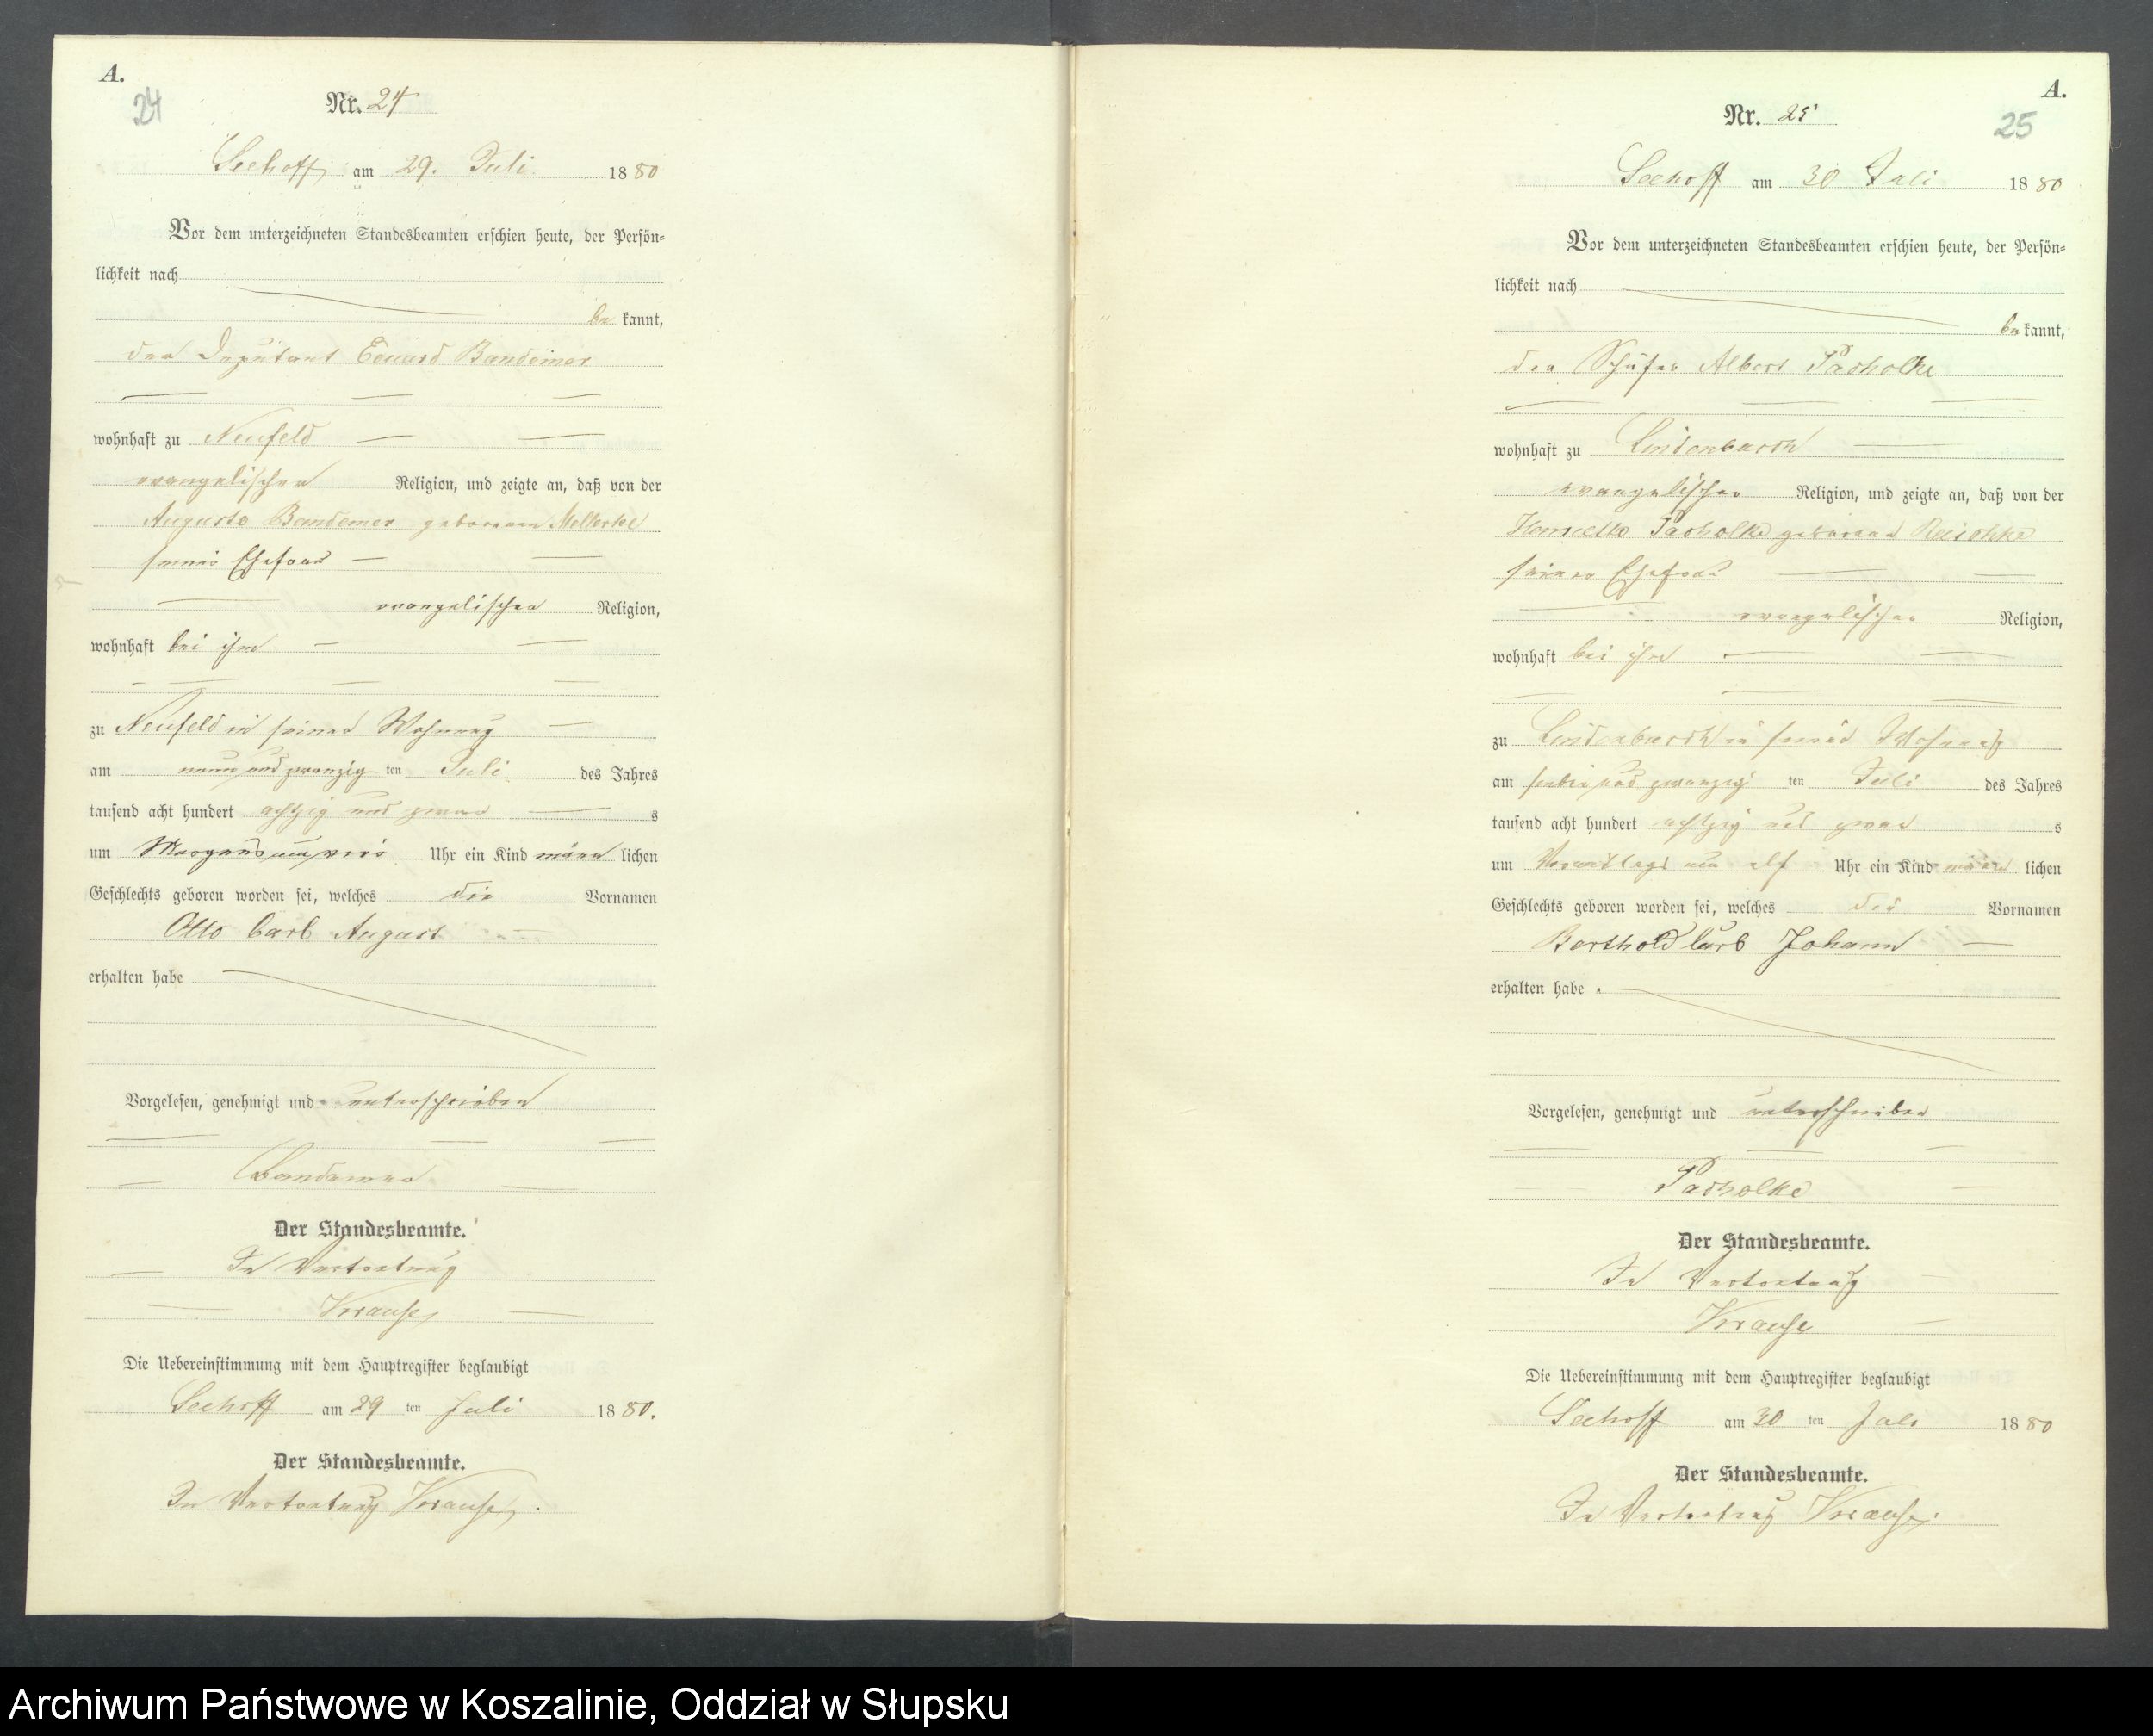 A.
24
Nr. 24
Seehoff, am 29. Juli 1880
Vor dem unterzeichneten Standesbeamten erschien heute, der Persön=
lichkeit nach
be kannt,
der Deputant Eduard Bandemer
wohnhaft zu Neufeld
evangelischer Religion, und zeigte an, daß von der
Auguste Bandemer geborenen
seiner Ehefrau
evangelischer Religion,
wohnhaft bei ihm
zu Neufeld in seiner Wohnung
am neun und zwanzig ten Juli des Jahres
tausend acht hundert achtzig und zwar s
um Morgens um vier Uhr ein Kind männ lichen
Geschlechts geboren worden sei, welches die Vornamen
Otto Carl August
erhalten habe
Vorgelesen, genehmigt und unterschrieben
Bandemer
Der Standesbeamte.
In Vertretung
Krause
Die Uebereinstimmung mit dem Hauptregister beglaubigt
Seehoff am 29 ten Juli 1880.
Der Standesbeamte.
In Vertretung Krause.
A.
25
Nr. 25
Seehoff am 30 Juli 1880
Vor dem unterzeichneten Standesbeamten erschien heute, der Persön=
lichkeit nach
be kannt,
der Schäfer Albert Pasholke
wohnhaft zu Lindenbusch
evangelischer Religion, und zeigte an, daß von der
Henriette Pasholke geborene
seiner Ehefrau
evangelischer Religion,
wohnhaft bei ihm
zu Lindenbusch in seiner Wohnung
am sieben und zwanzig ten Juli des Jahres
tausend acht hundert achtzig und zwar s
um Vormittags um elf Uhr ein Kind männ lichen
Geschlechts geboren worden sei, welches die Vornamen
Berthold Carl Johann
erhalten habe.
Vorgelesen, genehmigt und unterschrieben
Pasholke
Der Standesbeamte.
In Vertretung
Krause
Die Uebereinstimmung mit dem Hauptregister beglaubigt
Seehoff am 30 ten Juli 1880
Der Standesbeamte.
In Vertretung Krause.
Archiwum Państwowe w Koszalinie, Oddział w Słupsku